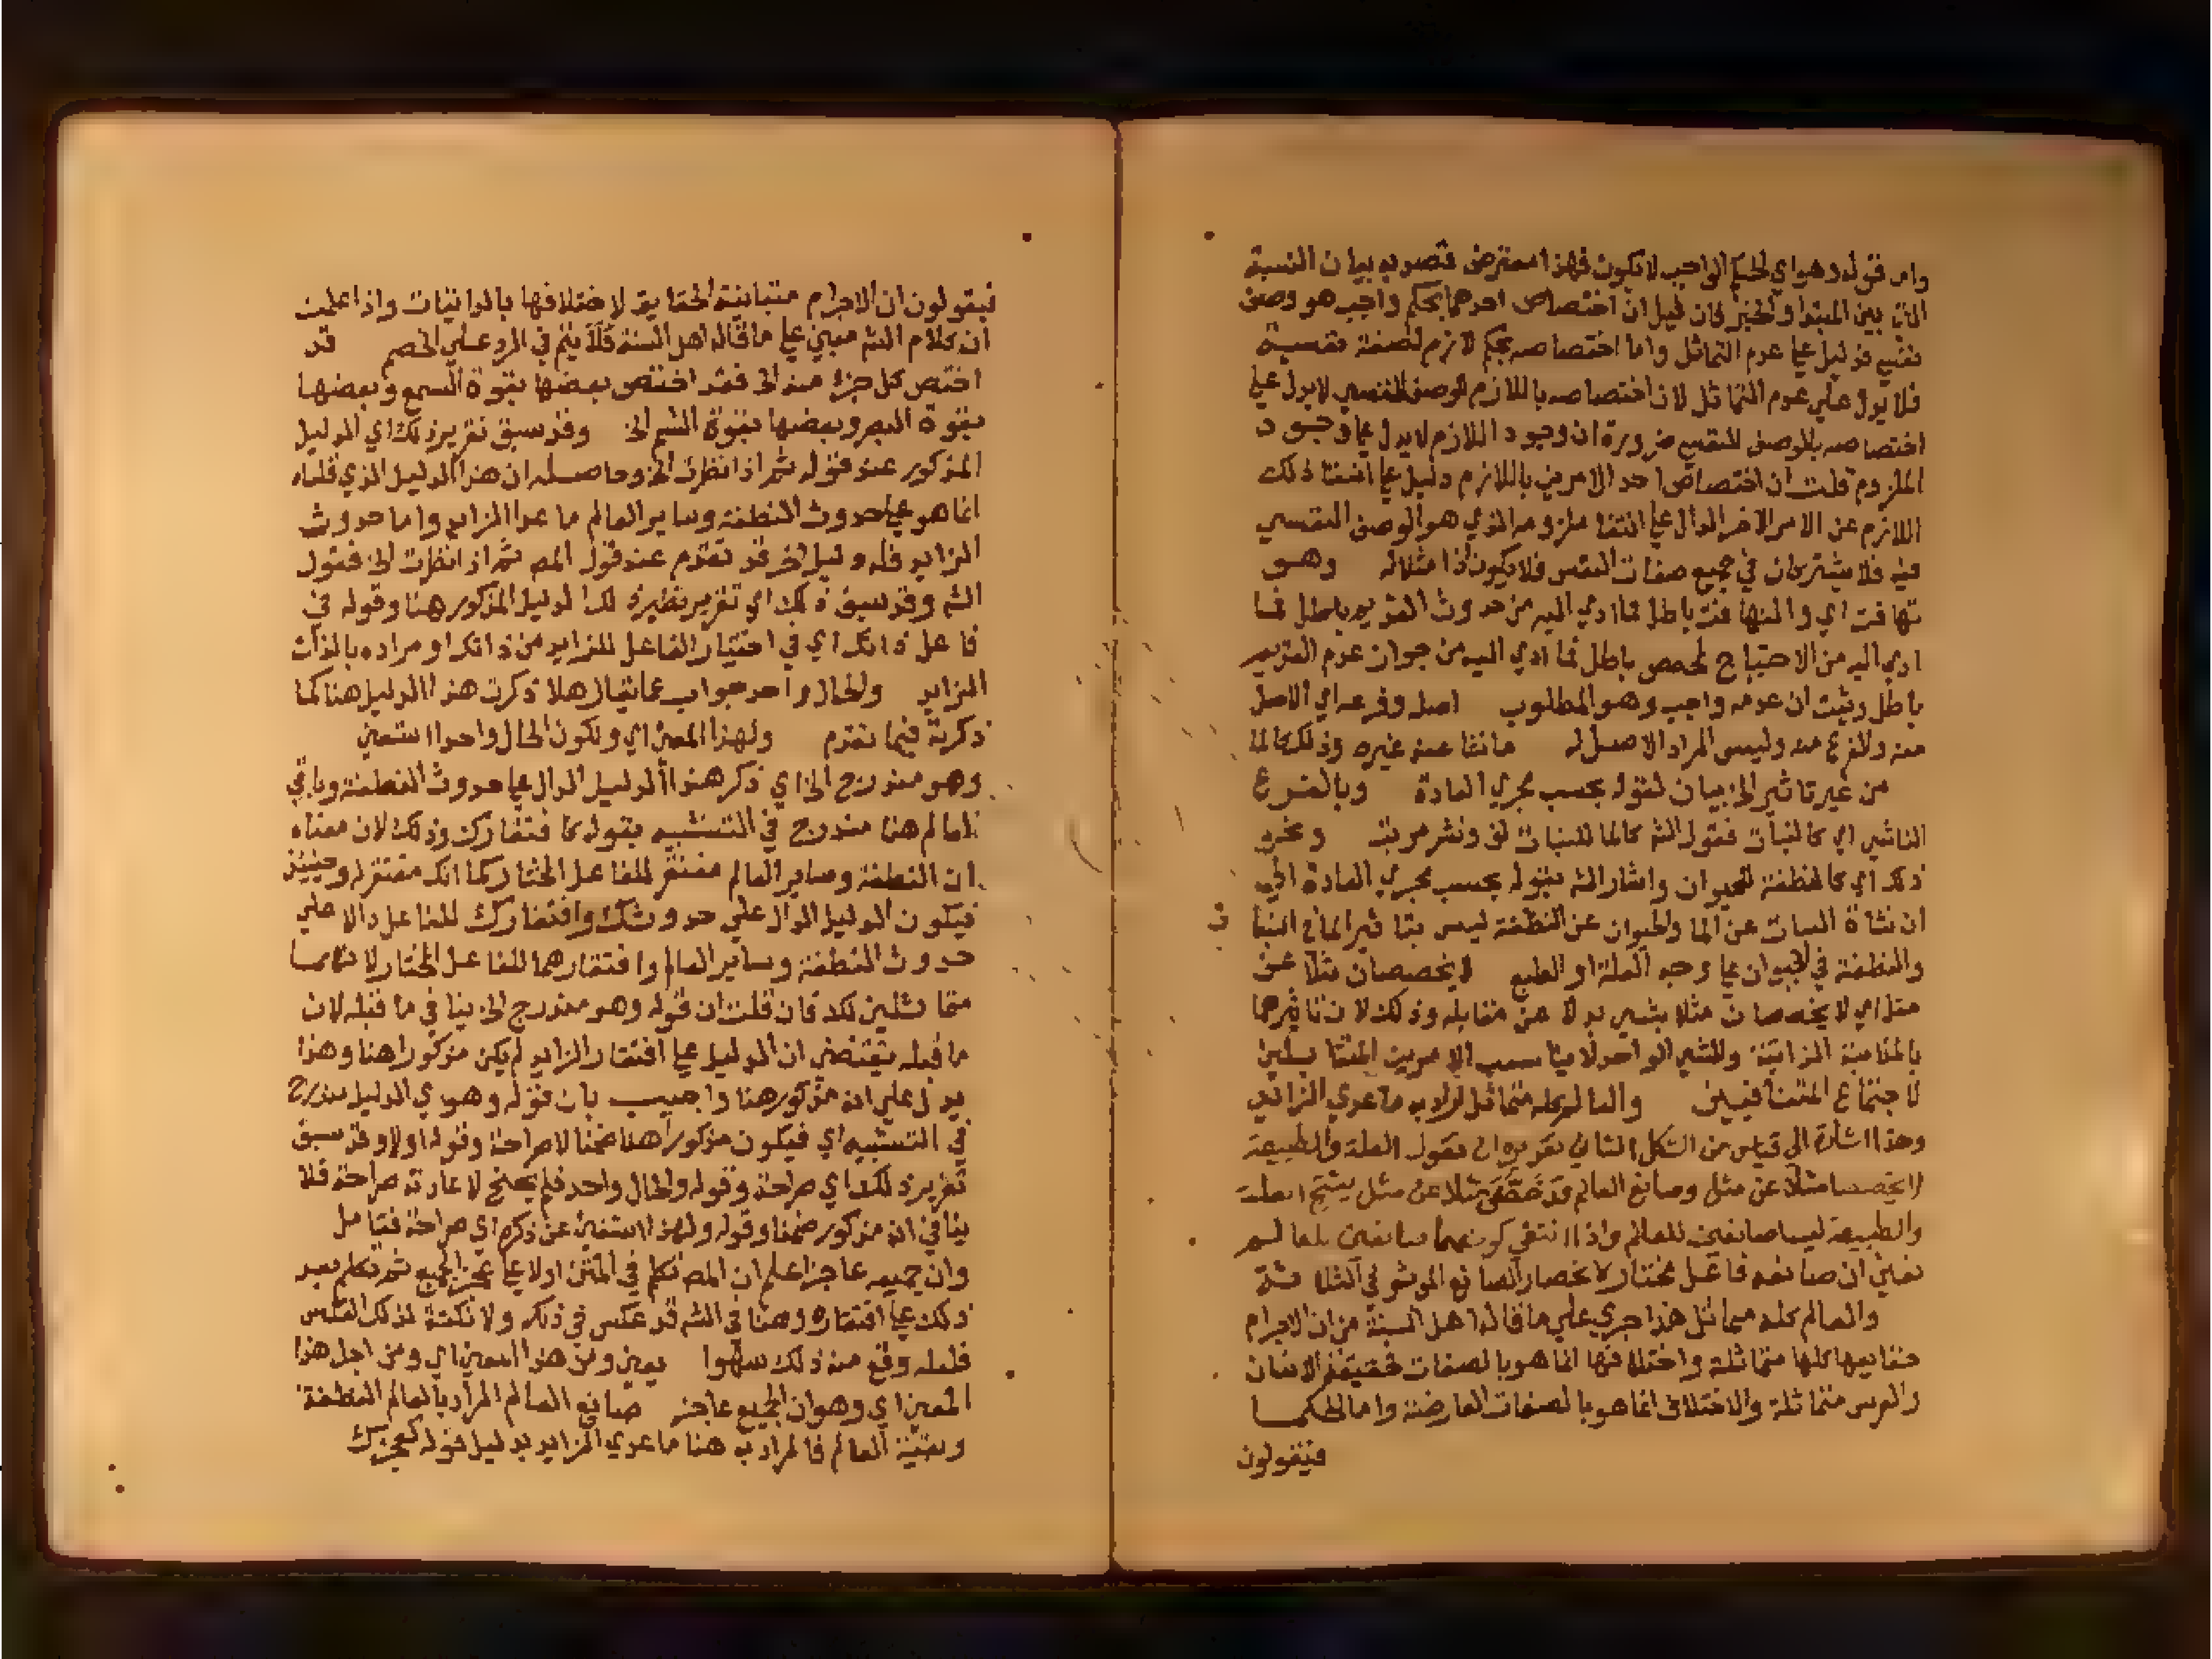 واما قوله وهو اي الحكم الواجب لا يكون فهذا معترض قصد به بيان النسبة
التي بين المبتدا والخبر فان قيل ان اختصاص احدهما بحكم واجب هو وصف
نفسي دليل علي عدم التماثل واما اختصاصه بحكم لازم لصفة نفسية
فلا يدل علي عدم التماثل لان اختصاصه باللازم للوصف النفسي لا يدل علي
اختصاصه بالوصف النفسي ضرورة ان وجود اللازم لا يدل علي وجود
الملزوم قلت ان اختصاص احد الامرين باللازم دليل علي انتفا ذلك
اللازم عن الامر الاخر الدال علي انتفا ملزومه الذي هو الوصف النفسي
فيه فلا يشتركان في جميع صفات النفس فلا يكون ذا مثلا له وهو
تهافت اي والتهافت باطل فما ادي اليه من حدوث القديم باطل فما
ادي اليه من الاحتياج لمخصص باطل فما ادي اليه من جواز عدم القديم
باطل وثبت ان عدمه واجب وهو المطلوب اصله وفرعه اي الاصل
منه والفرع منه وليس المراد الاصل له ما نشا عنه غيره وذلك كالما
من غير تاثير الخ بيان لقوله بحسب مجري العادة وبالفرع
الناشي اي كالنبات فقول الش كالما للنبات لف ونشر مرتب ونحو
ذلك اي كالنطفة للحيوان واشار الش بقوله بحسب مجري العادة الي
ان نشاة النبات عن الما والحيوان عن النطفة ليس بتاثير الما في النبات
والنطفة في الحيوان علي وجه العلة او الطبع لا يخصصان مثلا عن
مثل اي لا يخصصان مثلا بشي بدلا عن مقابله وذلك لان تاثيرهما
بالمناسبة الذاتية والشي الواحد لا يناسب الامرين المتقابلين
لاجتماع المتنافيين والعالم كله متماثل المراد به ما عدي الزايد
وهذا اشارة الي قياس من الشكل الثاني تقريره ان نقول العلة والطبيعة
لا يخصصا مثلا عن مثل وصانع العالم قد خصص مثلا عن مثل ينتج العلة
والطبيعة ليسا صانعين للعالم واذا انتفي كونهما صانعين للعالم
تعين ان صانعه فاعل مختار لانحصار الصانع الموثر في الثلاثة
والعالم كله متماثل هذا جري علي ما قاله اهل السنة من ان الاجرام
حقايقها كلها متماثلة واختلافها انما هو بالصفات فحقيقة الانسان
والفرس متماثلة والاختلاف انما هو بالصفات العارضة واما الحكما
فيقولون
فيقولون ان الاجرام متباينة الحقايق لاختلافها بالذاتيات واذا علمت
ان كلام الش مبني علي ما قاله اهل السنة فلا يتم في الرد علي الخصم قد
اختص كل جزء منه الخ فقد اختص بعضها بقوة السمع وبعضها
بقوة البصر وبعضها بقوة الشم الخ وقد سبق تقرير ذلك اي الدليل
المذكور عند قوله ثم اذا نظرت الخ وحاصله ان هذا الدليل الذي قلناه
انما هو علي حدوث النطفة وساير العالم ما عدا الزايد واما حدوث
الزايد فله دليل اخر قد تقدم عند قول المص ثم اذا نظرت الخ فقول
الش وقد سبق ذلك اي تقرير نظيره لذا الدليل المذكور هنا وقوله في
فاعل ذاتك اي في اختيار الفاعل للزايد من ذاتك او مراده بالذات
الزايد والحال واحد جواب عما يقال هلا ذكرت هذا الدليل هنا كما
ذكرته فيما تقدم ولهذا المعني اي ولكون الحال واحدا استغني
وهو مندرج الخ اي ذكر هذا الدليل الدال علي حدوث النطفة وباقي
العالم هنا مندرج في التشبيه بقوله كافتقارك وذلك لان معناه
ان النطفة وساير العالم مفتقر للفاعل المختار كما انك مفتقر له وحينئذ
فيكون الدليل الدال علي حدوثك وافتقارك للفاعل دالا علي
حدوث النطفة وساير العالم وافتقارهما للفاعل المختار لانهما
متماثلين لك فان قلت ان قوله وهو مندرج الخ ينافي ما قبله لان
ما قبله يقتضي ان الدليل علي افتقار الزايد لم يكن مذكورا هنا وهذا
يدل علي انه مذكور هنا واجيب بان قوله وهو اي الدليل مندرج
في التشبيه اي فيكون مذكورا هنا ضمنا لا صراحة وقوله اولا وقد سبق
تقرير ذلك اي صراحة وقوله والحال واحد فلم يحتج لاعادته صراحة فلا
ينافي انه مذكور ضمنا وقوله ولهذا استغني عن ذكره اي صراحة فتامل
وان جميعه عاجز اعلم ان المص تكلم في المتن اولا علي عجز الجميع ثم تكلم بعد
ذلك علي افتقاره وهنا في الش قد عكس في ذلك ولا نكتة لذلك العكس
فلعله وقع منه ذلك سهوا يعني ومن هذا المعني اي ومن اجل هذا
المعني اي وهو ان الجميع عاجز صانع العالم المراد بالعالم النطفة
وبقية العالم فالمراد به هنا ما عدي الزايد بدليل قوله كعجزك